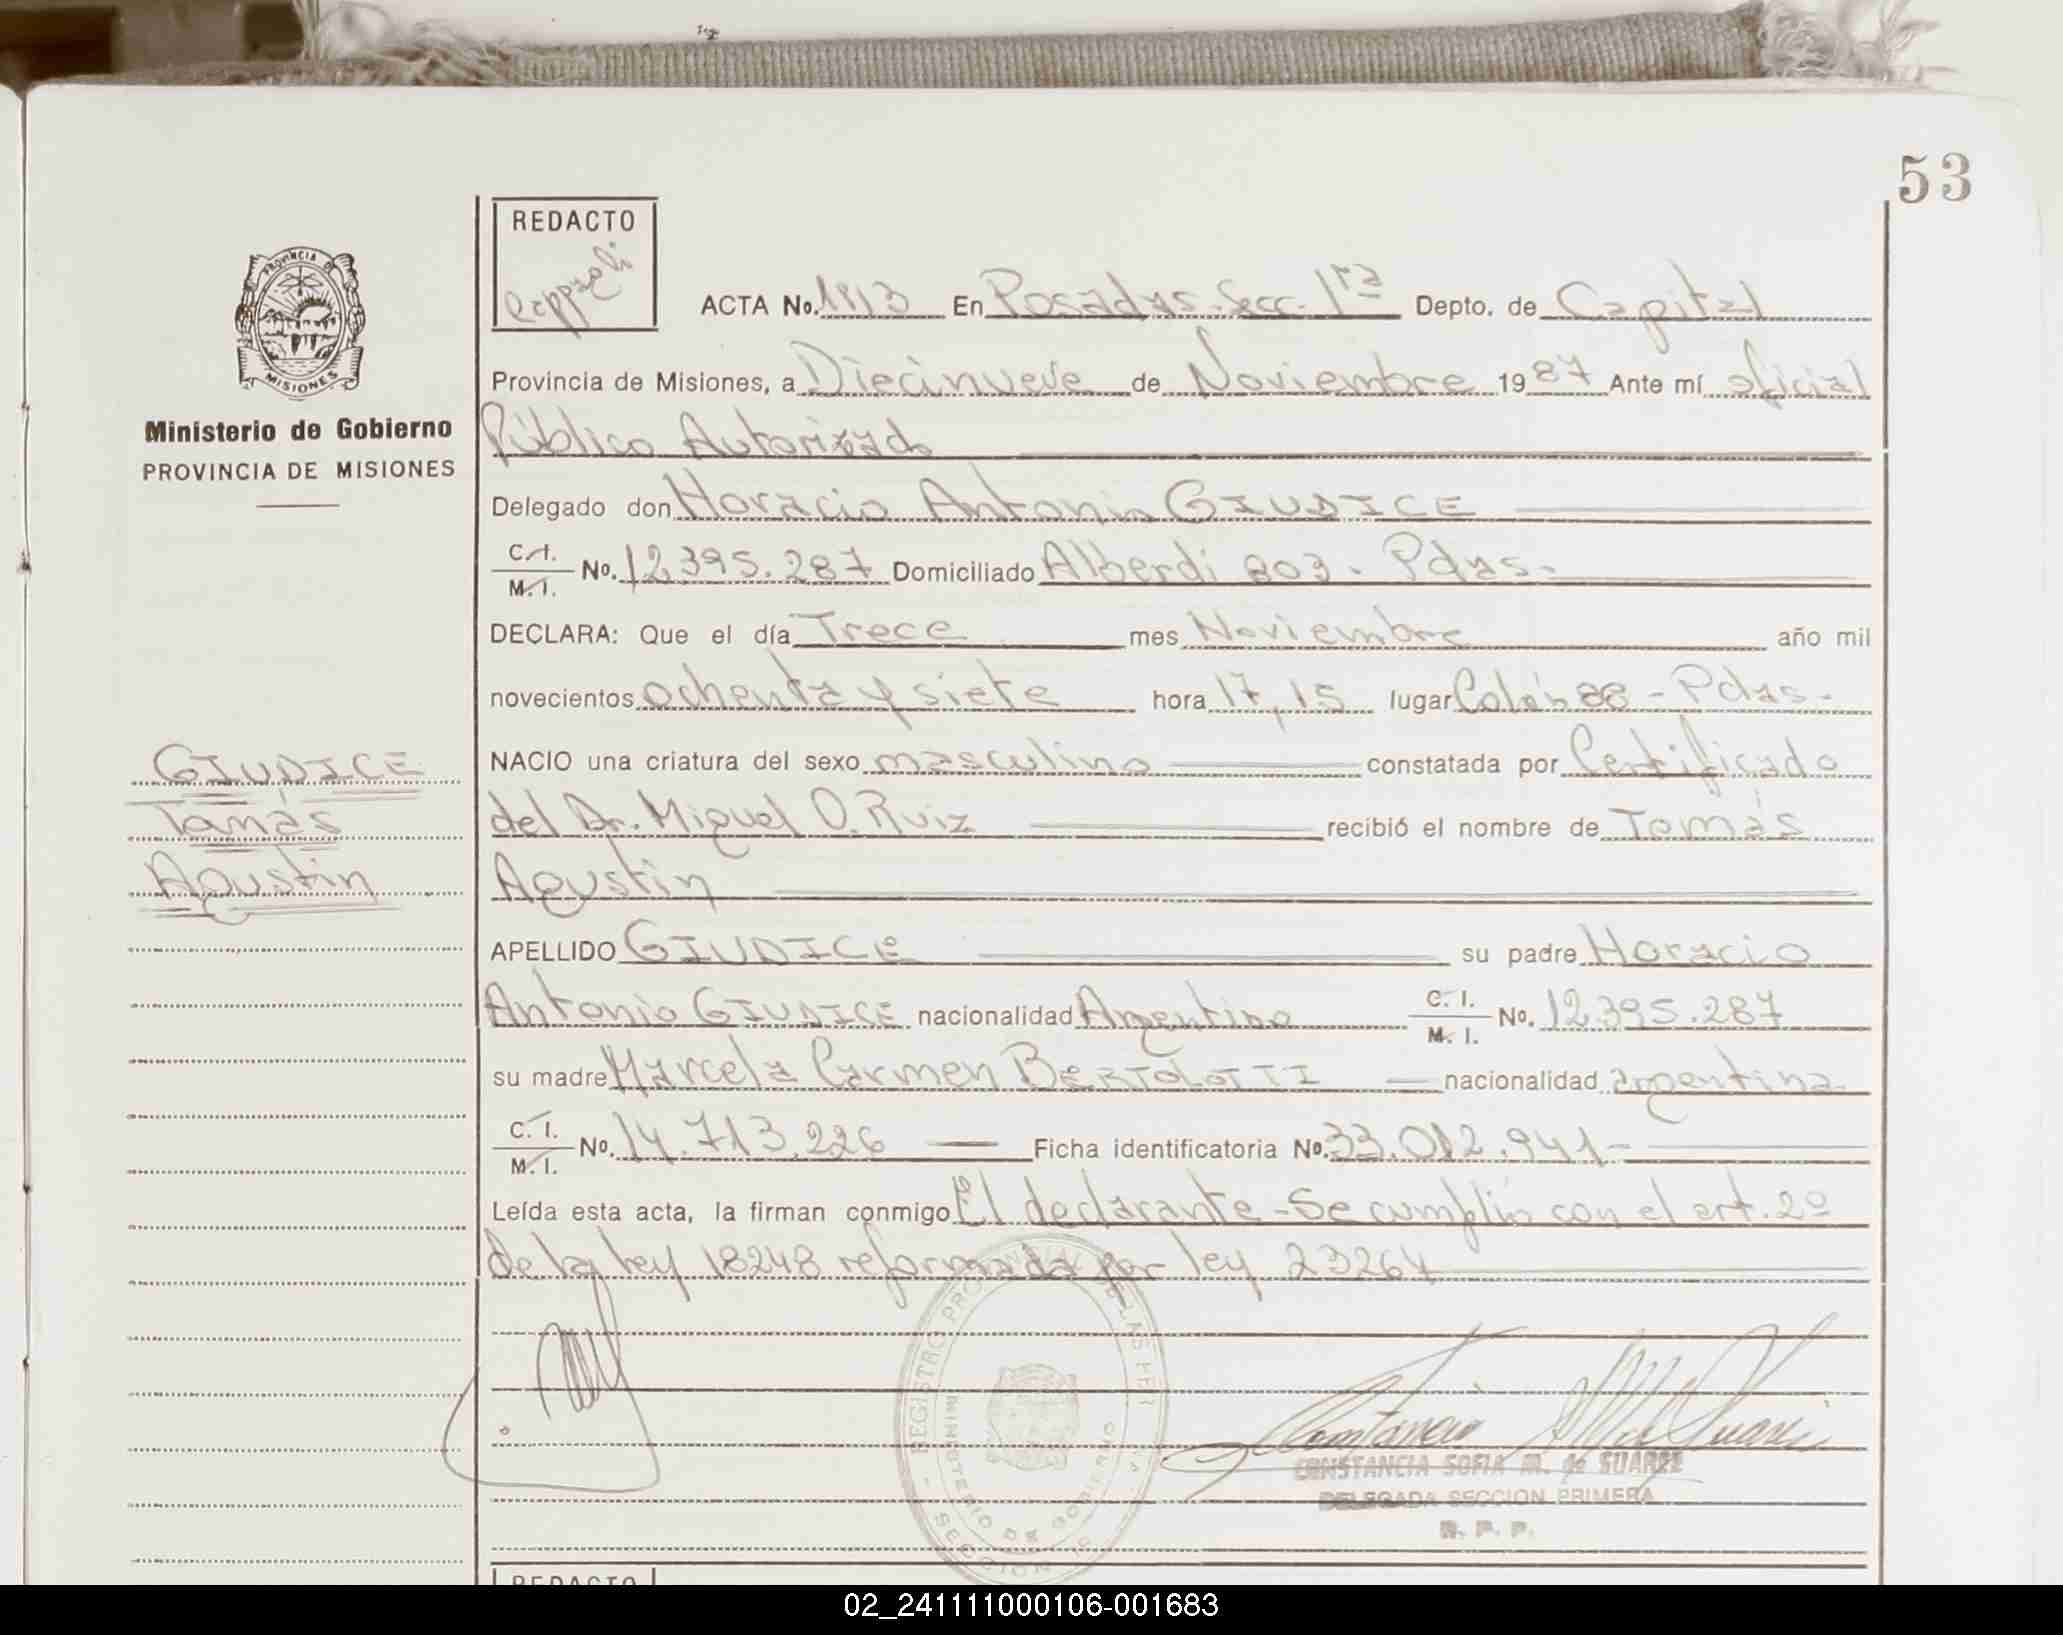 53
REDACTO
ACTA No. 1813 En Posadas - Secc. 1ra Depto. de Capital
PROVINCIA DE MISIONES
Provincia de Misiones, a Diecinueve de Noviembre 1987 Ante mí oficial
Público Autorizado
Ministerio de Gobierno
PROVINCIA DE MISIONES
Delegado don Horacio Antonio GIUDICE
C.I. M.I. No. 12.395.287 Domiciliado Alberdi 803 - Pdas -
DECLARA: Que el día Trece mes Noviembre año mil
novecientos ochenta y siete hora 17,15 lugar Colón 88 - Pdas -
GIUDICE
Tomás
Agustín
NACIO una criatura del sexo masculino constatada por Certificado
del Dr. Miguel O. Ruiz recibió el nombre de Tomás
Agustín
APELLIDO GIUDICE su padre Horacio
Antonio GIUDICE nacionalidad Argentino C. I. M. I. No. 12.395.287
su madre Marcela Carmen BERTOLOTTI nacionalidad argentina
C. I. M. I. No. 14.713.226 Ficha identificatoria No. 33.012.941-
Leída esta acta, la firman conmigo El declarante - Se cumplió con el art. 2º
de la ley 18248 reformada por ley 23264
REGISTRO PROVINCIAL DE LAS PER
MINISTERIO DE GOBIERNO
SECCION 1a
CONSTANCIA SOFIA M. de SUAREZ
DELEGADA SECCION PRIMERA
R. P. P.
REDACTO
02_241111000106-001683